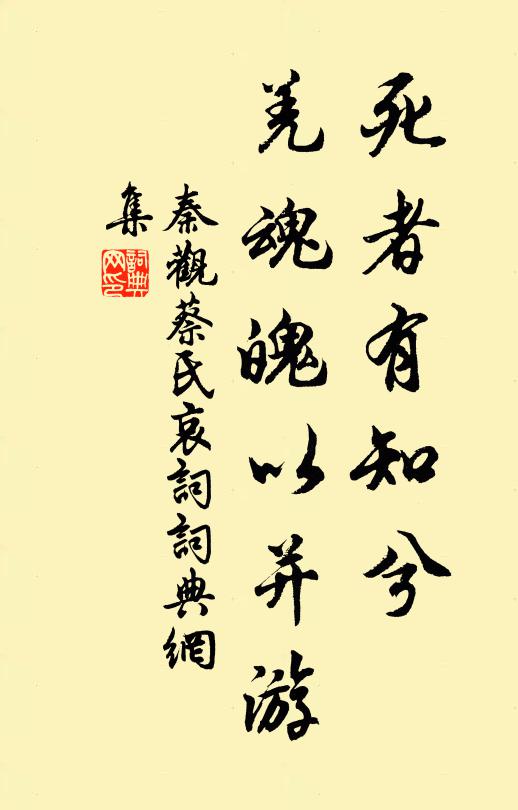 死者有知兮
羌魂魄以并游
秦觀蔡氏哀詞詞典網
集
詞典
网印